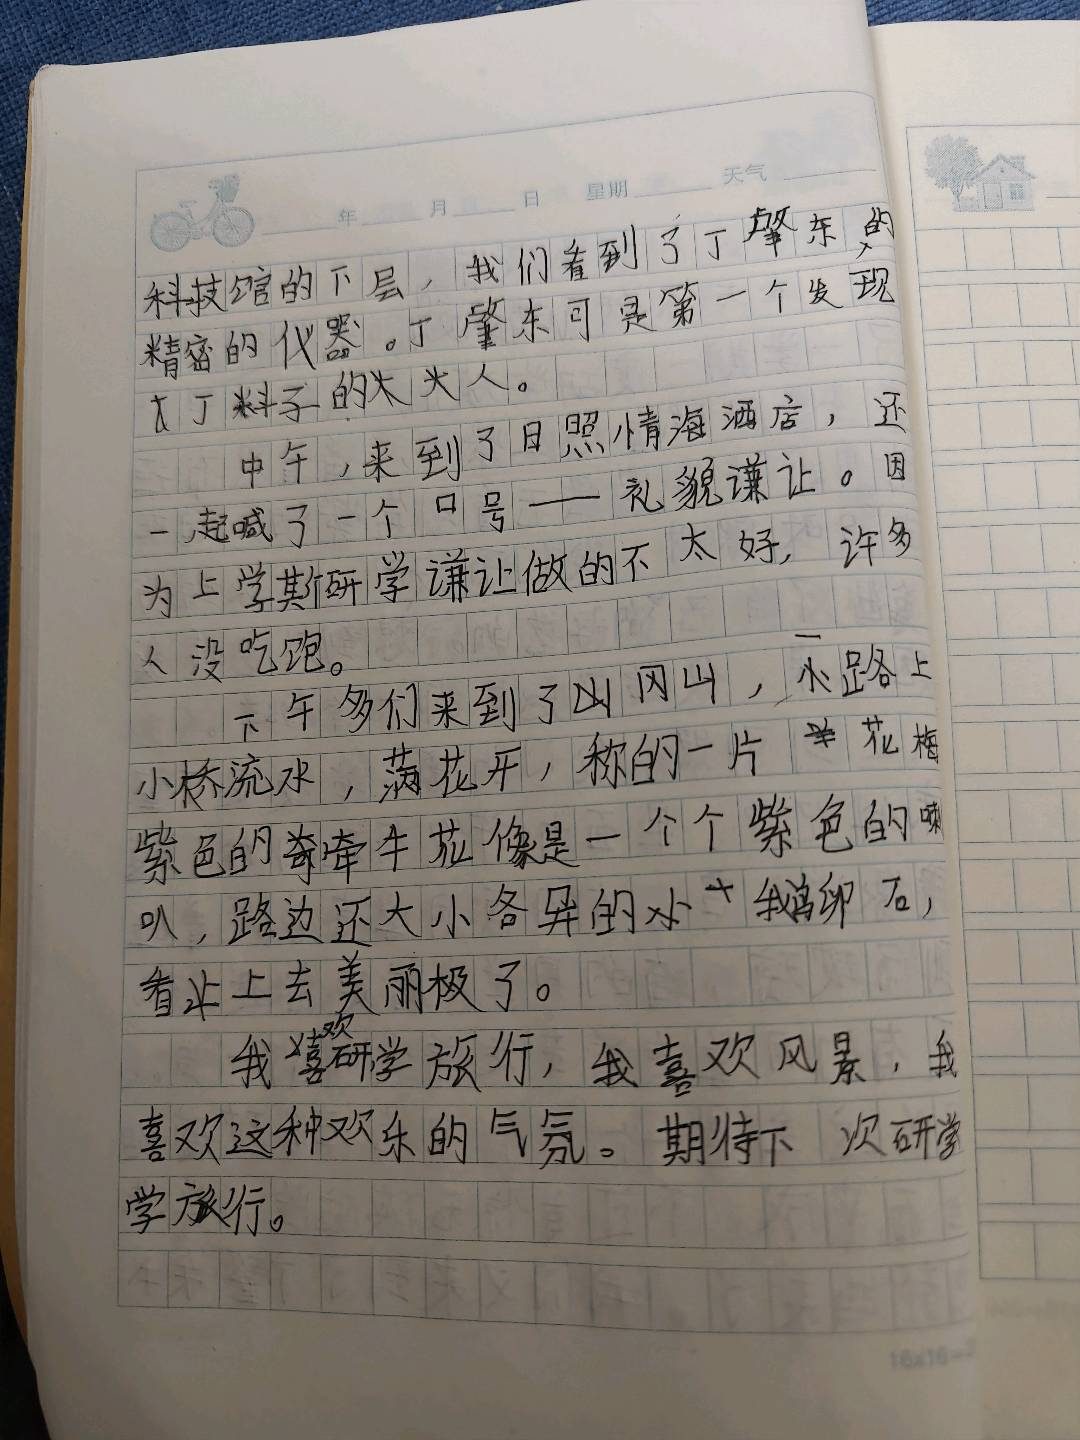 年 月 日 星期 天气
科技馆的下层，我们看到了丁肇东的
精密的仪器。丁肇东可是第一个发现
丁料子的大人。
中午，来到了日照情海酒店，还
一起喊了一个口号——礼貌谦让。因
为上学斯研学谦让做的不太好，许多
人没吃饱。
下午多们来到了山冈山，一小路上
小桥流水，满花开，称的一片花梅
紫色的牵牛花像是一个个紫色的喇
叭，路边还大小各异的小鹅卵石，
看上去美丽极了。
我喜欢研学旅行，我喜欢风景，我
喜欢这种欢乐的气氛。期待下次研学
学旅行。
16x16=